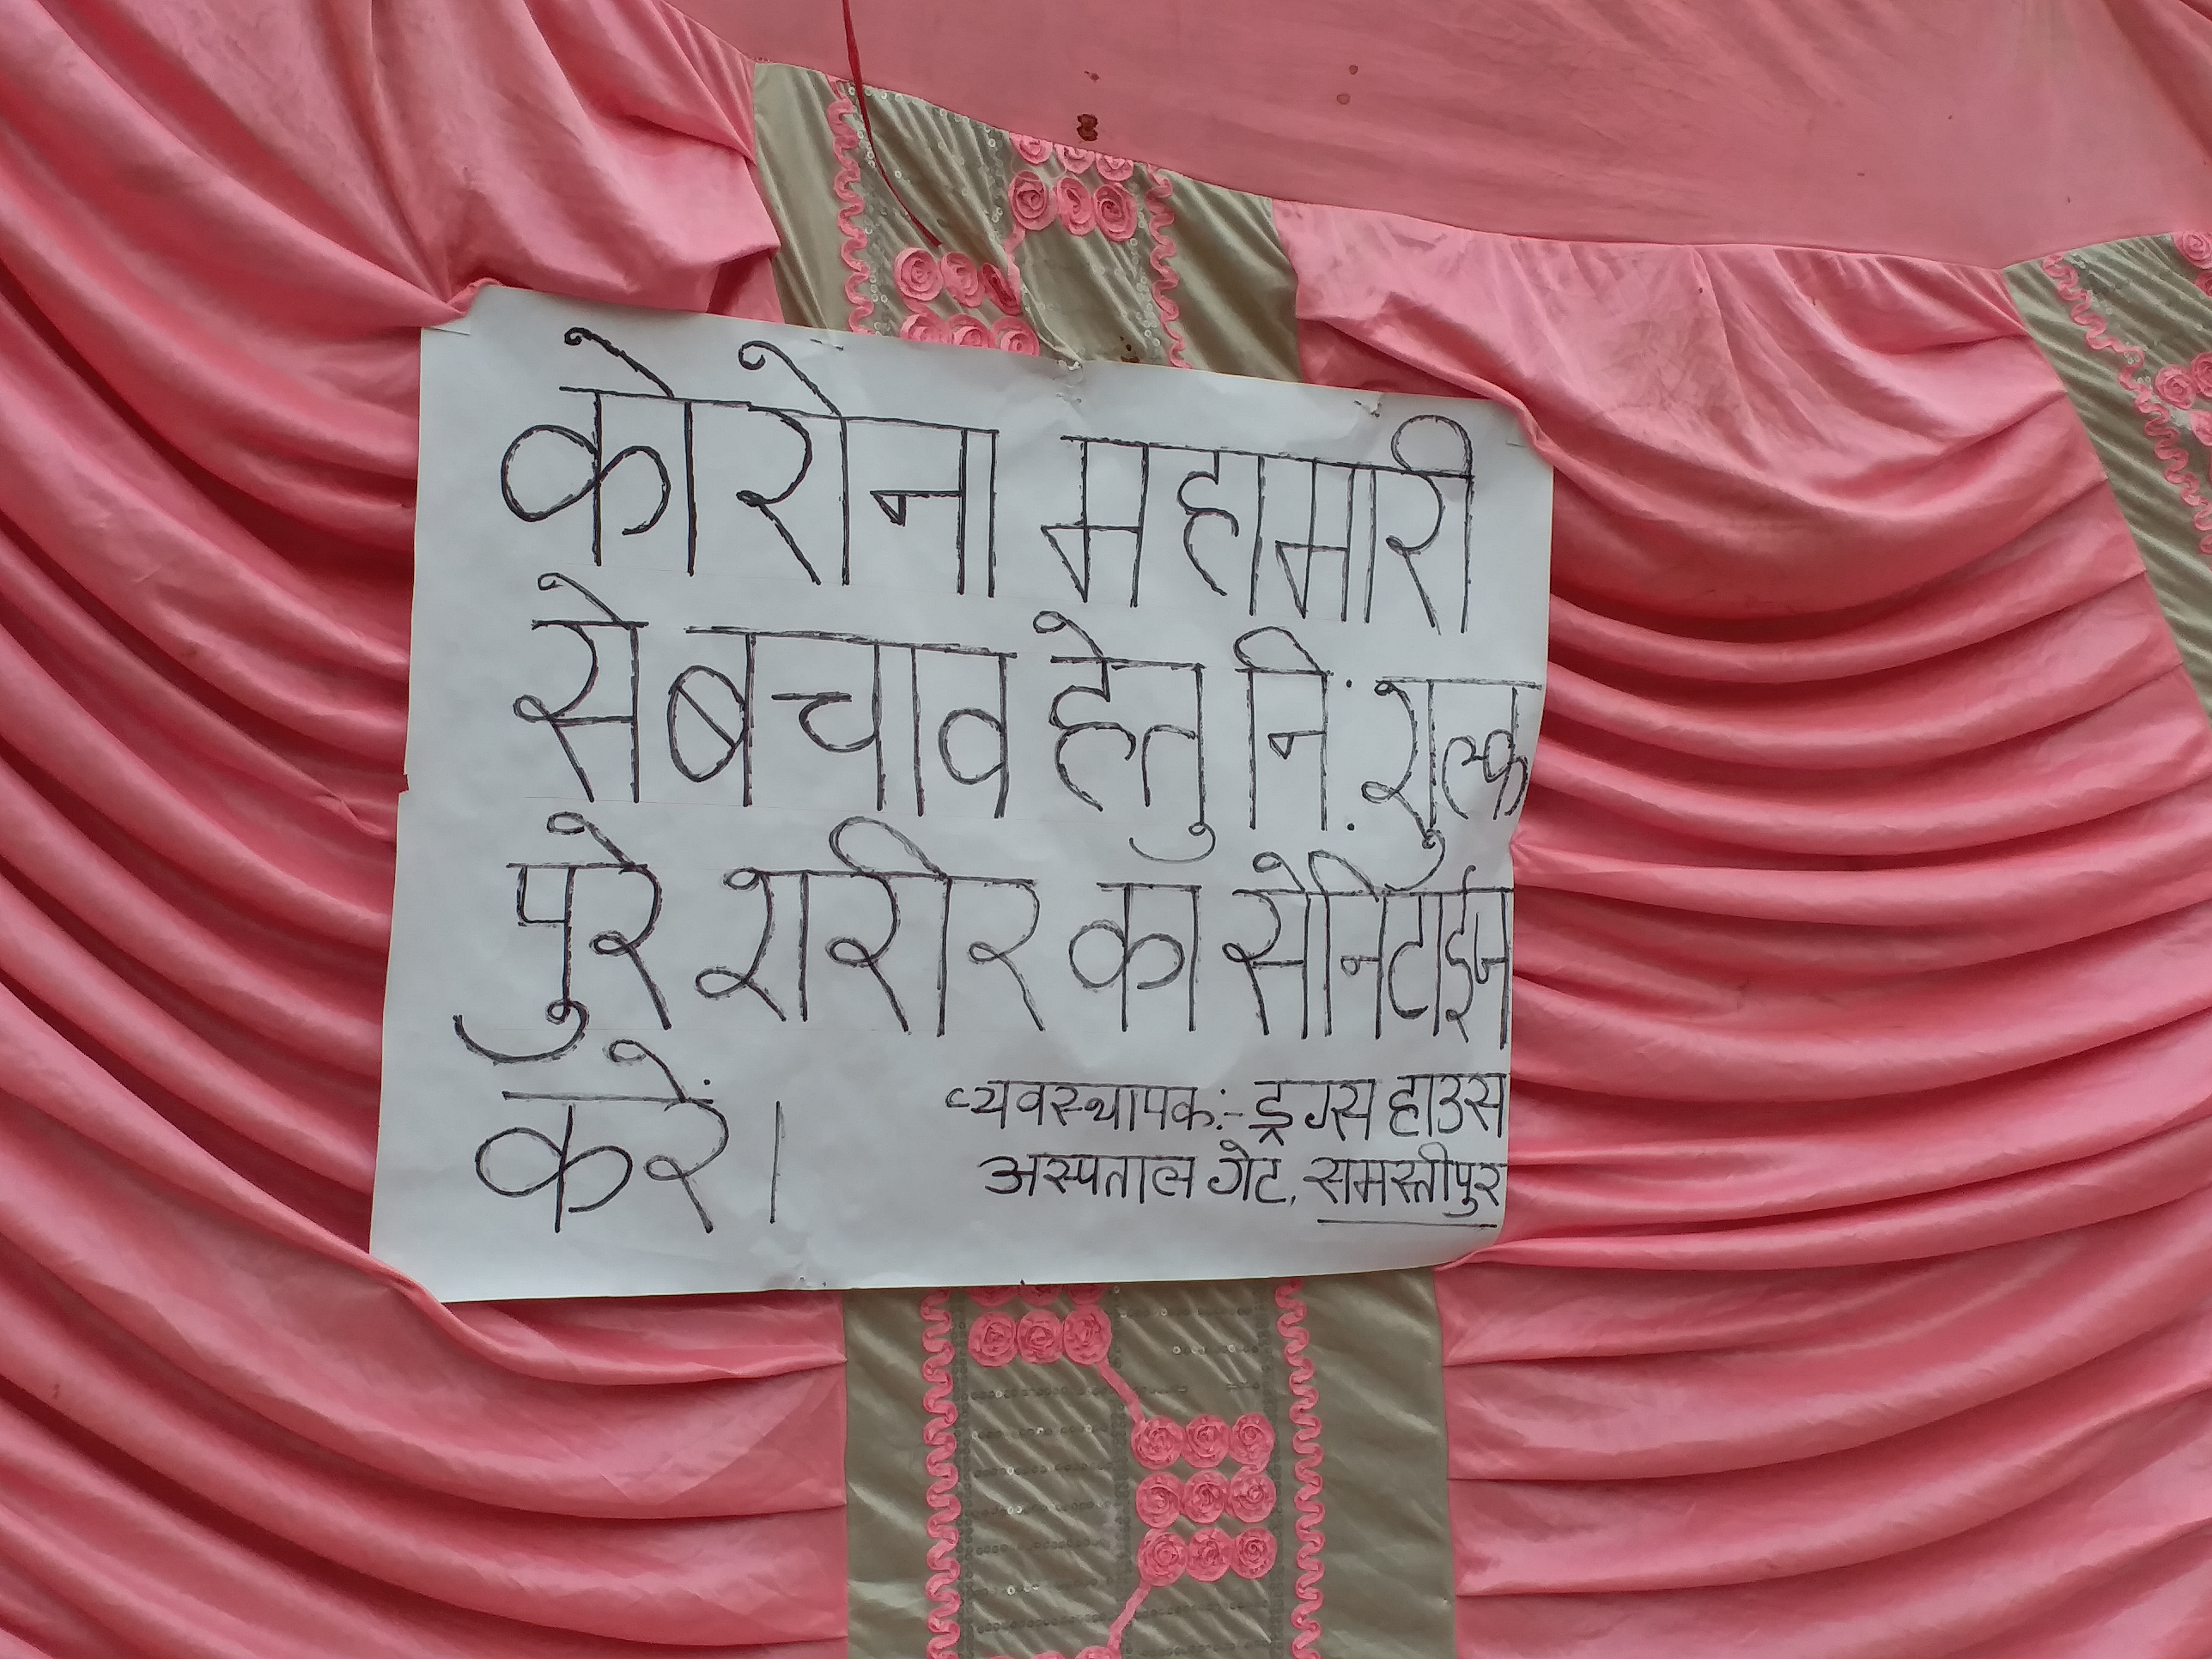 कोरोना महामारी
से बचाव हेतु नि: शुल्क
पुरे शरीर का सेनिटाईज
करें।
व्यवस्थापक:- ड्रग्स हाउस
अस्पताल गेट, समस्तीपुर